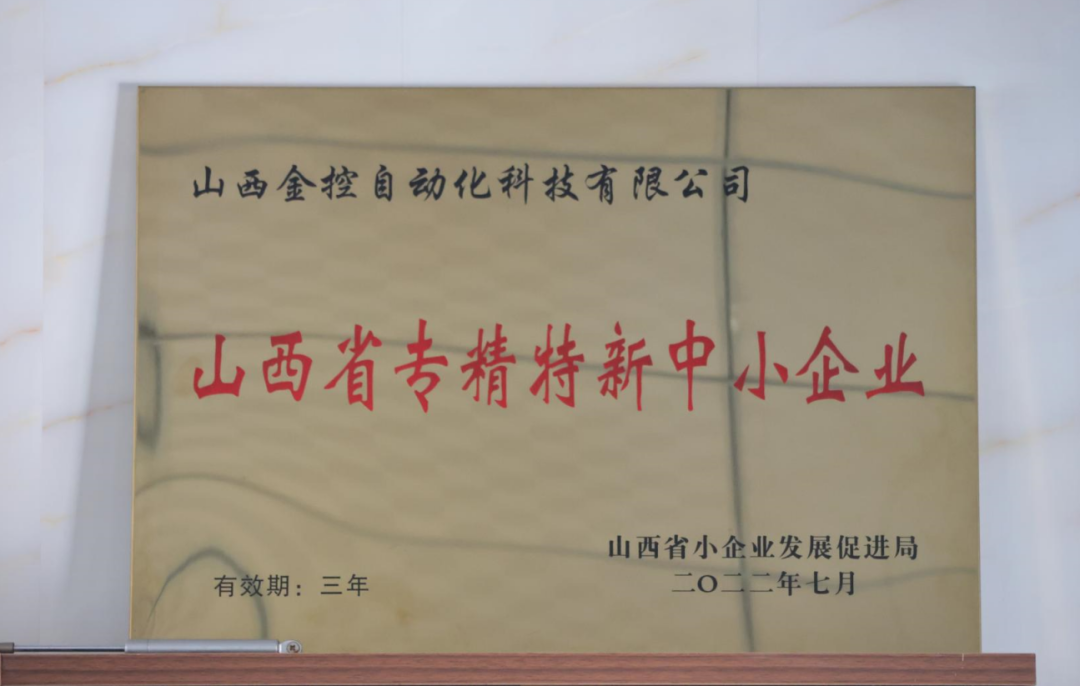 山西金控自动化科技有限公司
山西省专精特新中小企业
山西省小企业发展促进局
有效期：三年
二〇二二年七月